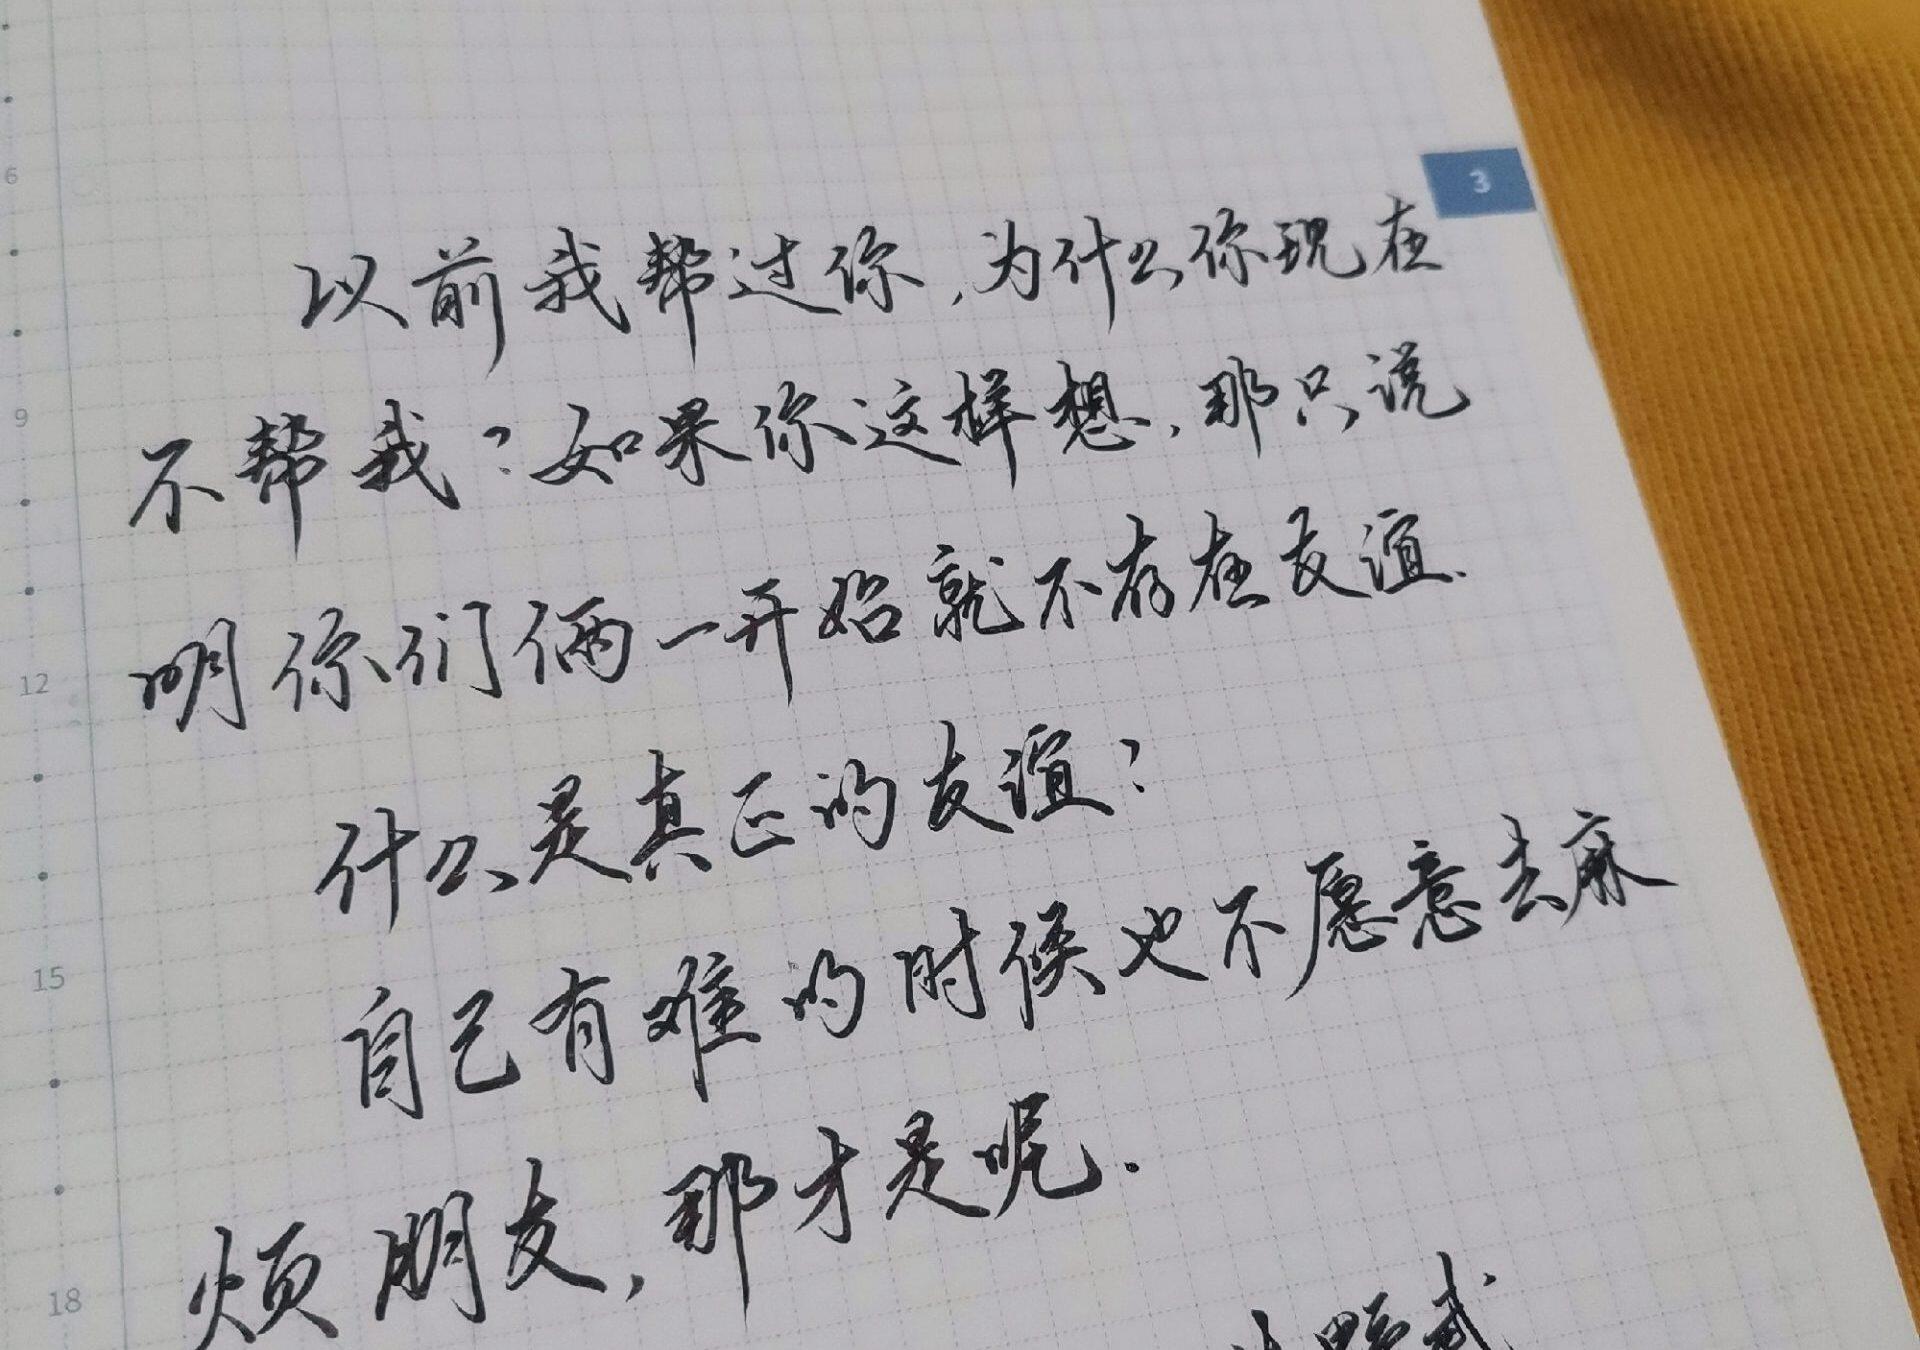 3
以前我帮过你,为什么你现在
不帮我?如果你这样想,那只说
明你们俩一开始就不存在友谊.
什么是真正的友谊?
自己有难的时候也不愿意去麻
烦朋友,那才是呢.
野武
6
9
12
15
18